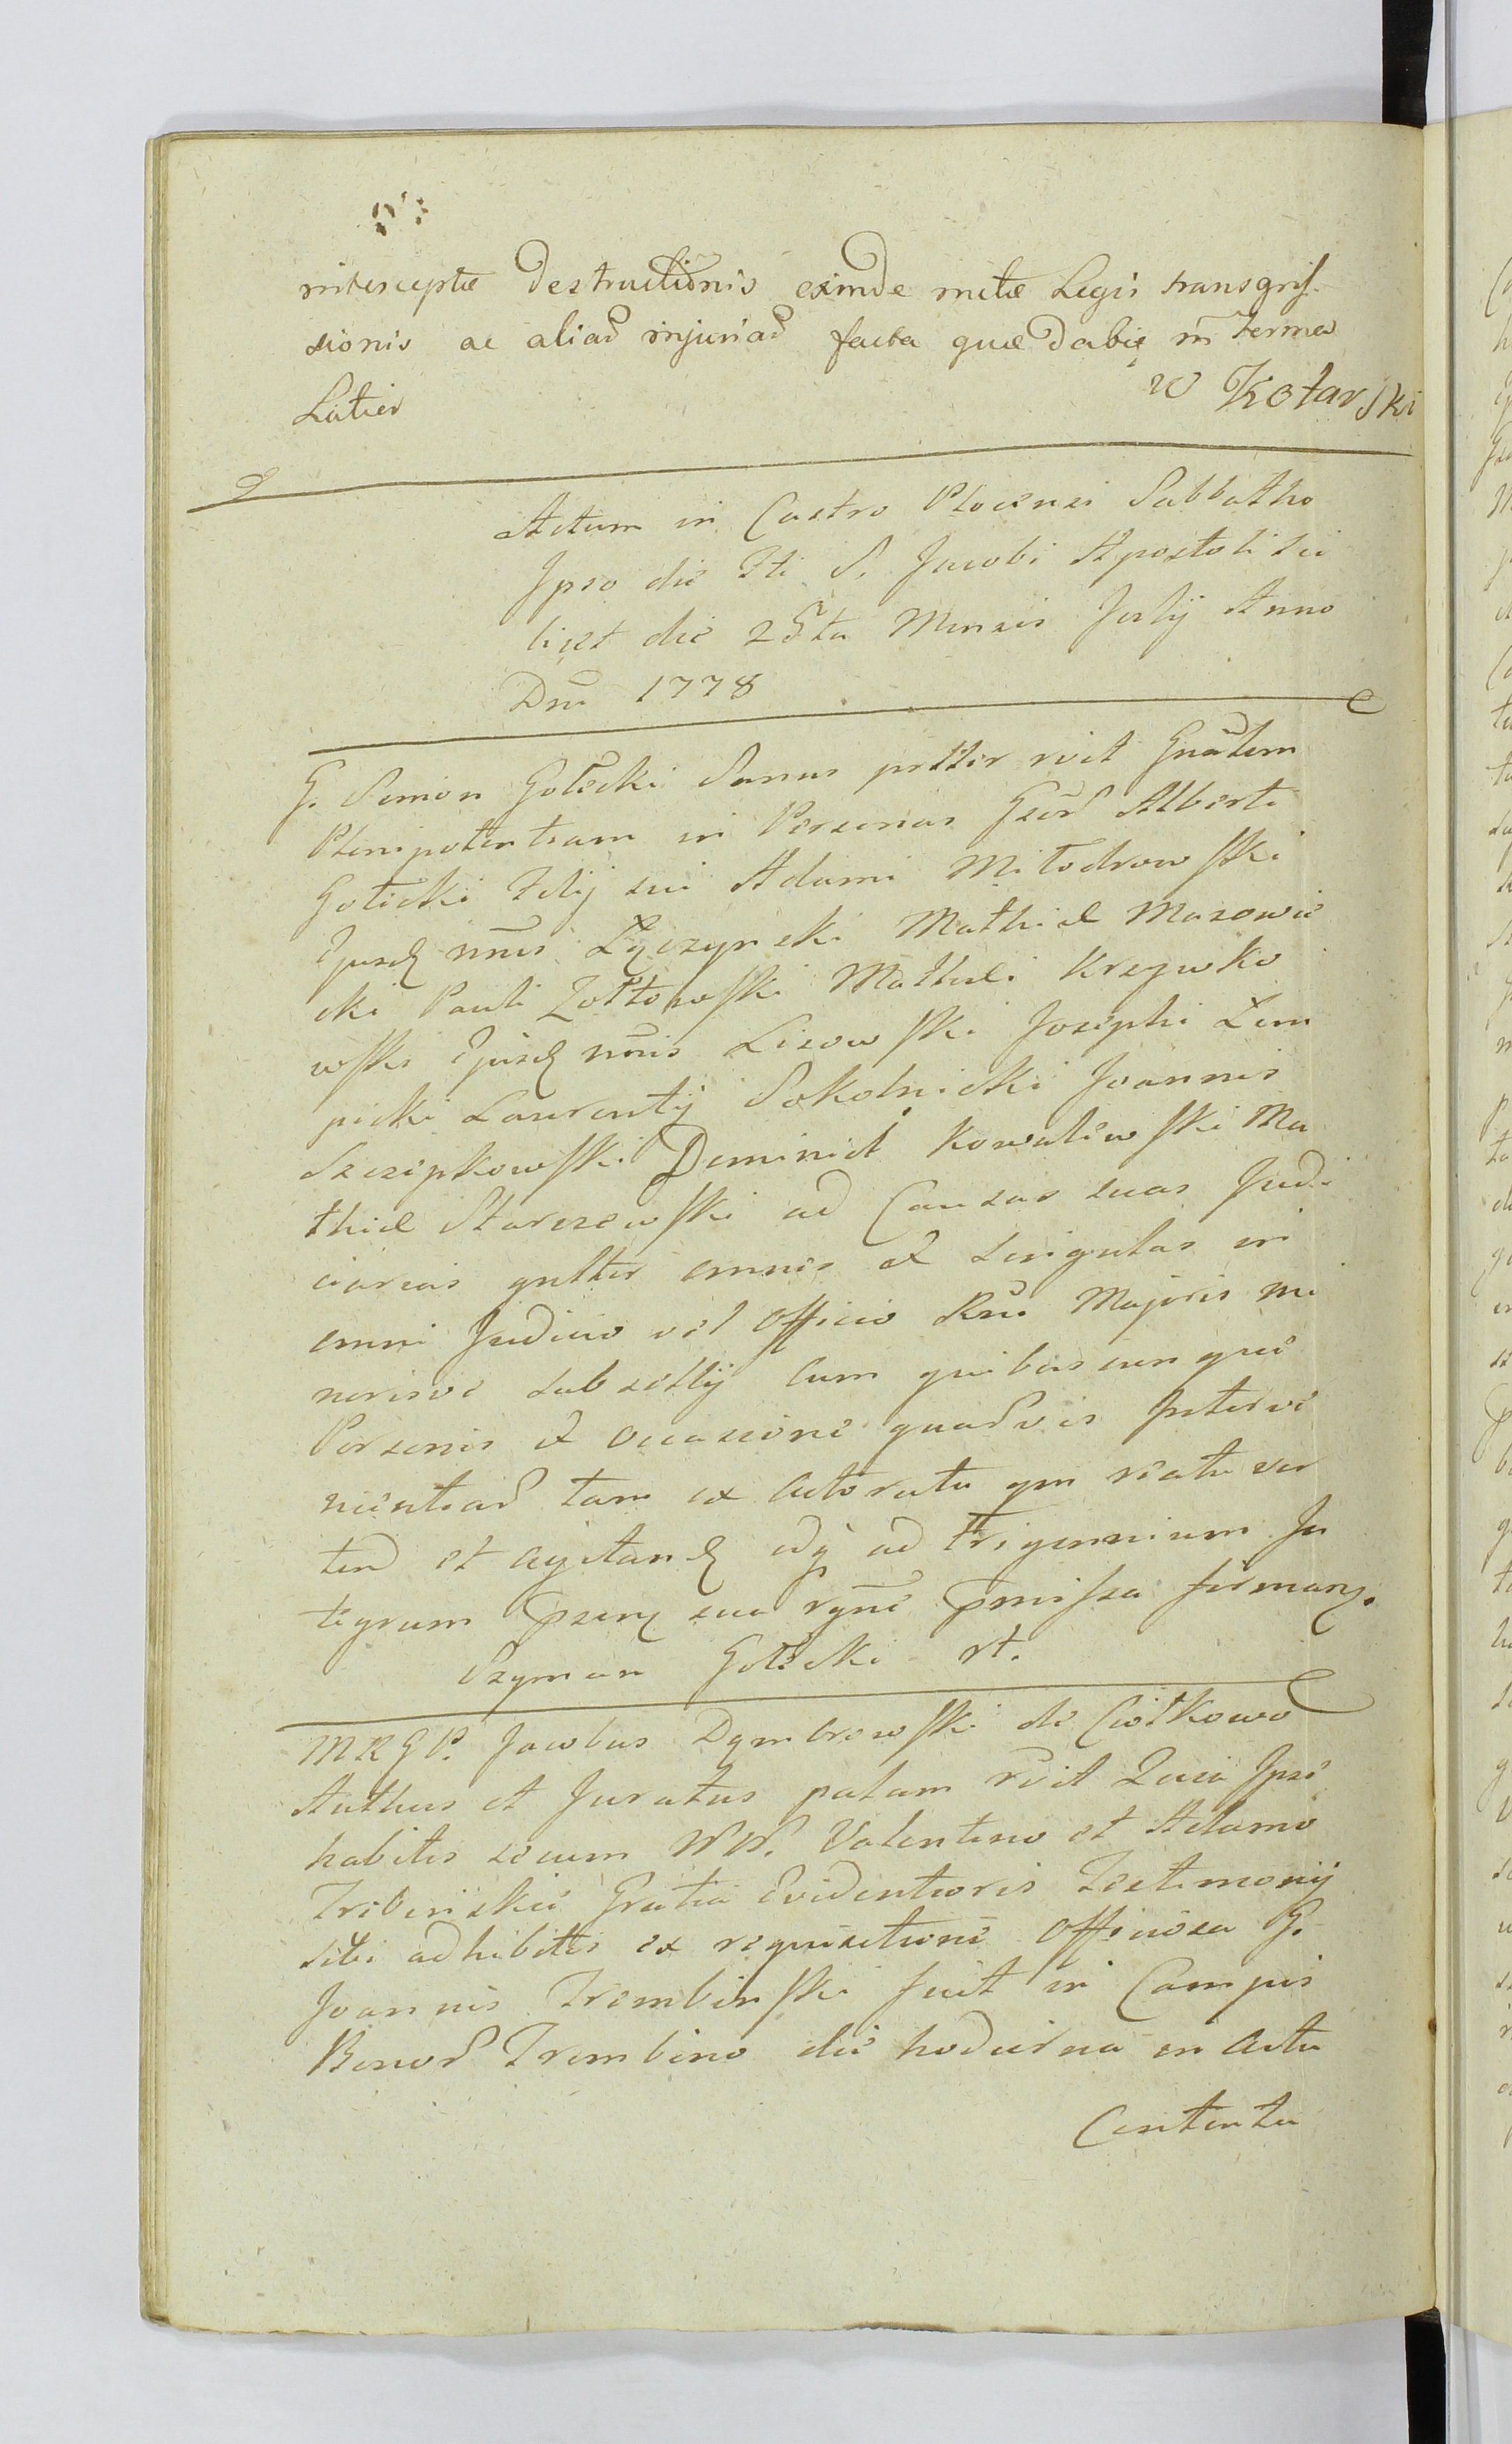 interceptæ destructionis exinde metæ Legis transgris
sionis ac aliad injuriad facta quæ dabię in̄ termo
Latier
w Kotarski
Actum in Castro Plocensi Sabbatho
Ipso die Fti S. Jacobi Apostoli sci
licet die 25ta Mensis July Anno
Dni 1778
G. Simon Golecki Sanus prtter rvit Gnãlem
Plenipotentiam in Personas Gsōr Alberti
Golecki Filij sui Adami Miłodrowski
Ejusd nn̄is Łęczynski Mathiæ Mazowie
cki Pauli Zołtowski Mathæi Krzywko
wski Ejusd nn̄is Lisowski Josephi Lem
picki Laurentij Sokolnicki Joannis
Szczepkowski Dominici Kowalewski Ma
thiæ Starczewski ad Causas suas Judi
ciareas gnltter omnes et singulas in
omni Judicio vel Officio Rni Majoris mi
norisve subsellij cum quibuscunque
Personis et occasione quarvis Interve
nientiar tam ex actoratu qm reatu ver
tend et agitand idq ad Trigennium In
tegrum psenq sua rgne pmissa firmanq.
Szyman Golecki rt.
MRGP. Jacobus Dymbrowski de Ciółkowo
Authus et Juratus palam rvit Quia Ipse
habitis secum NN. Valentino et Adamo
Trebinskie Gratia Evidentioris Testimonij
sibi adhibitis ex requisitione Officiosa G.
Joannis Trembinski fuit in Campis
Bonor Trembino die hodierna in actu
Contenta